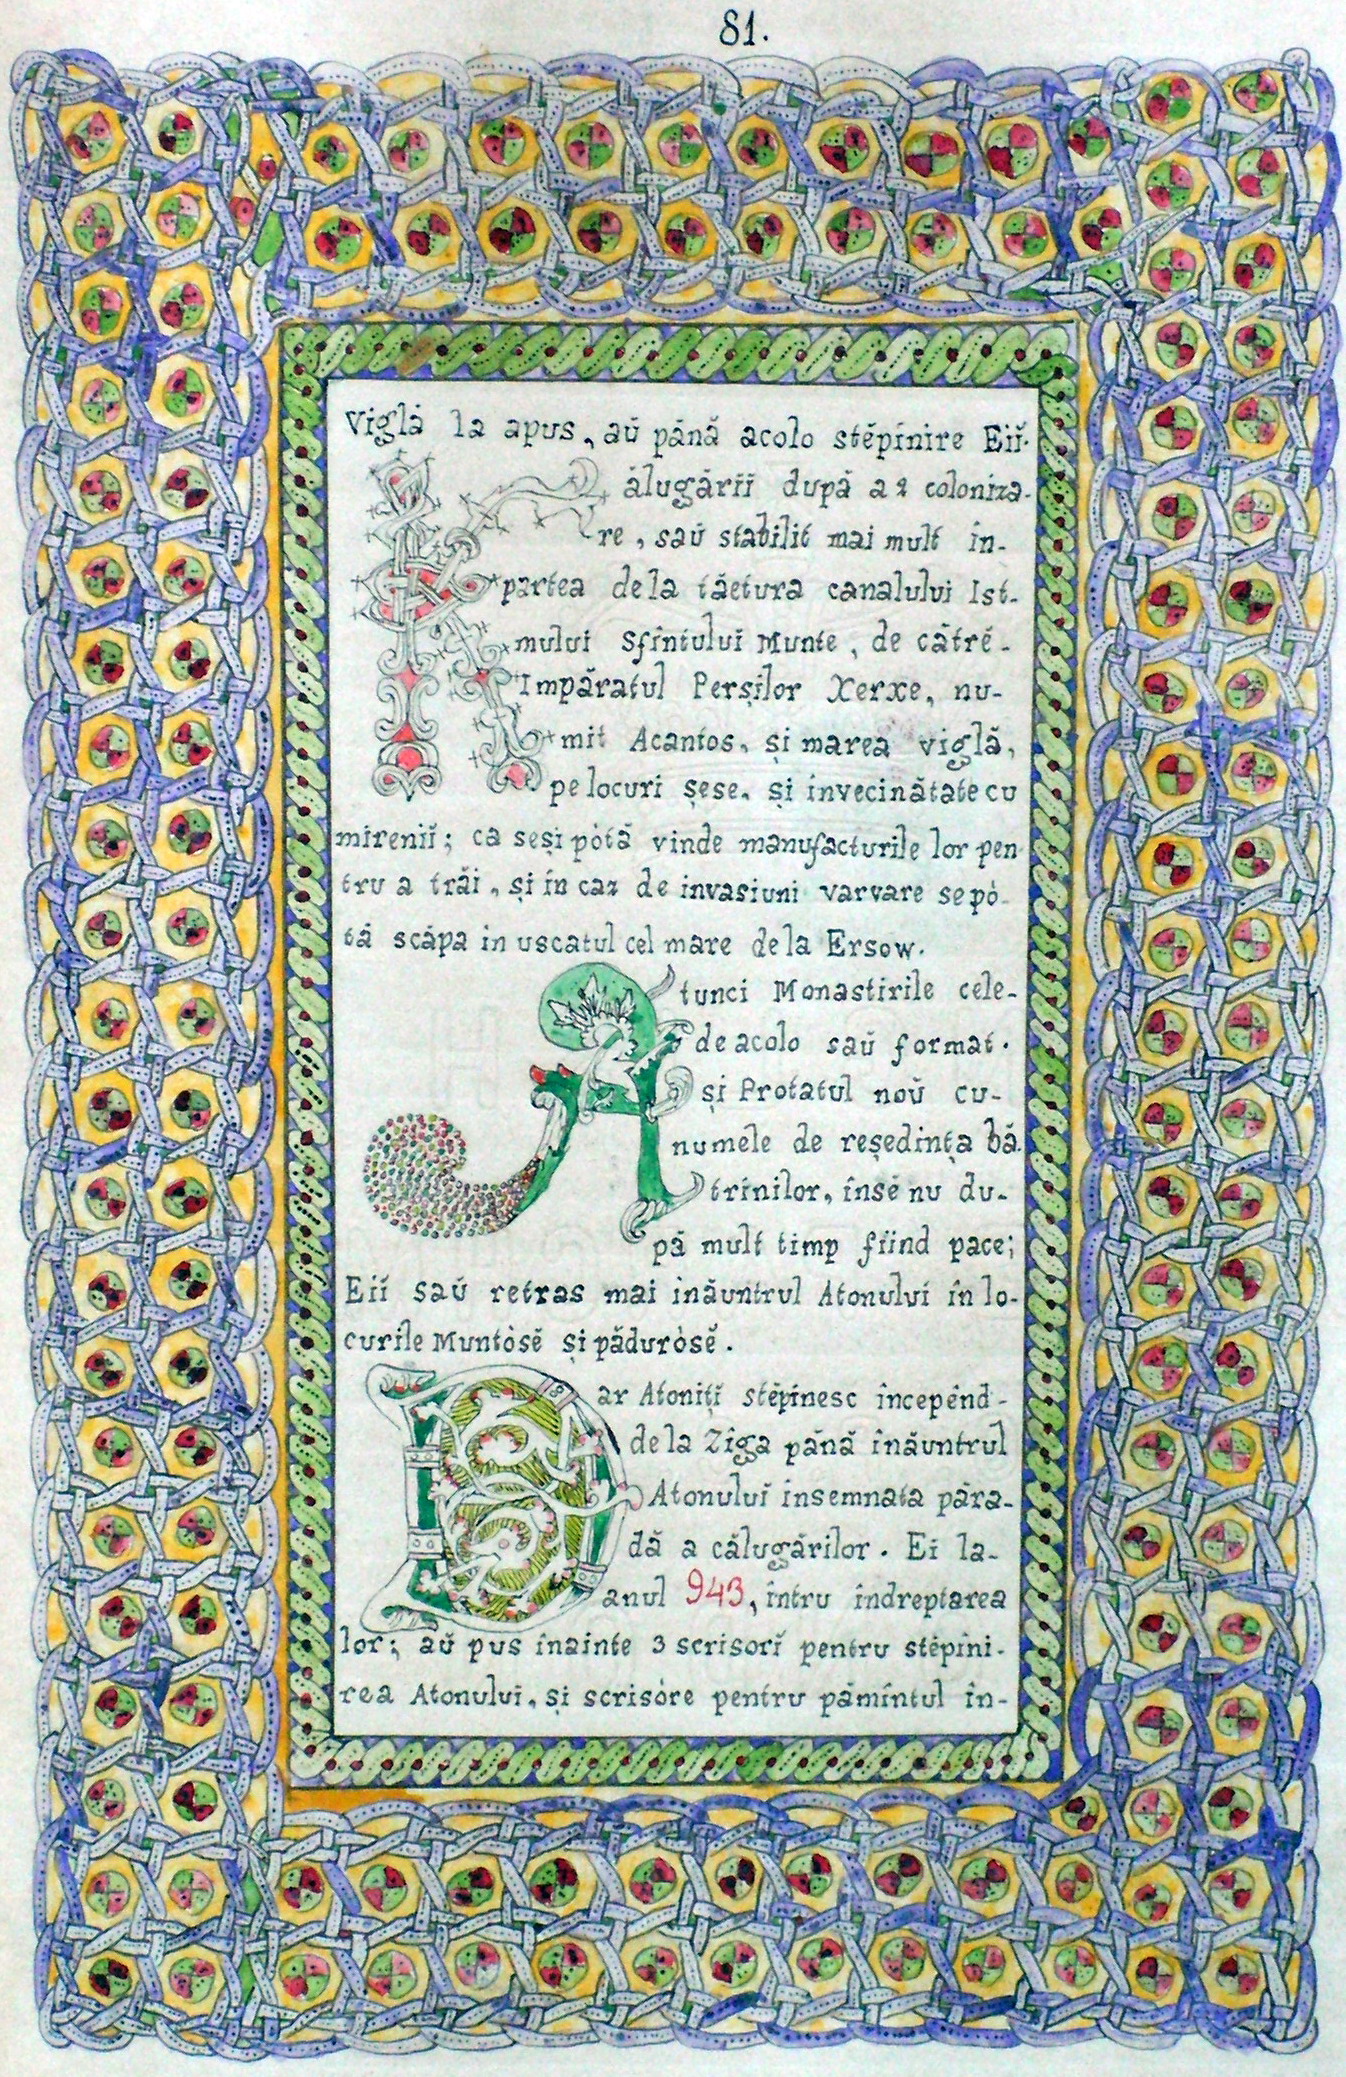 81.
Viglă la apus, aŭ până acolo stĕpînire Eiĭ.
Kălugăriĭ după a 2 coloniza-
re, saŭ stabilit mai mult în-
partea dela tăetura canaluluĭ Ist-
muluĭ Sfîntuluĭ Munte, de cătrĕ-
Împăratul Perșilor Xerxe, nu-
mit Acantos, și marea viglă,
pe locuri șese, și învecinătate cu
mireniĭ; ca seși pòtă vinde manufacturile lor pen
tru a trăi, și în caz de invasiuni varvare se pò-
tă scăpa in uscatul cel mare dela Ersow.
Atunci Monastirile cele-
de acolo saŭ format.
și Protatul noŭ cu-
numele de reședința bă.
trînilor, însĕ nu du-
pă mult timp fiind pace;
Eiĭ saŭ retras mai inăuntrul Atonuluĭ în lo-
curile Muntòsĕ și păduròsĕ.
Dar Atonițĭ stĕpînesc începĕnd-
dela Zîga până înăuntrul
Atonuluĭ însemnata para-
dă a călugărilor. Ei la-
anul 943, întru îndreptarea
lor; aŭ pus înainte 3 scrisorĭ pentru stĕpîni-
rea Atonuluĭ, și scrisòre pentru pămîntul în-